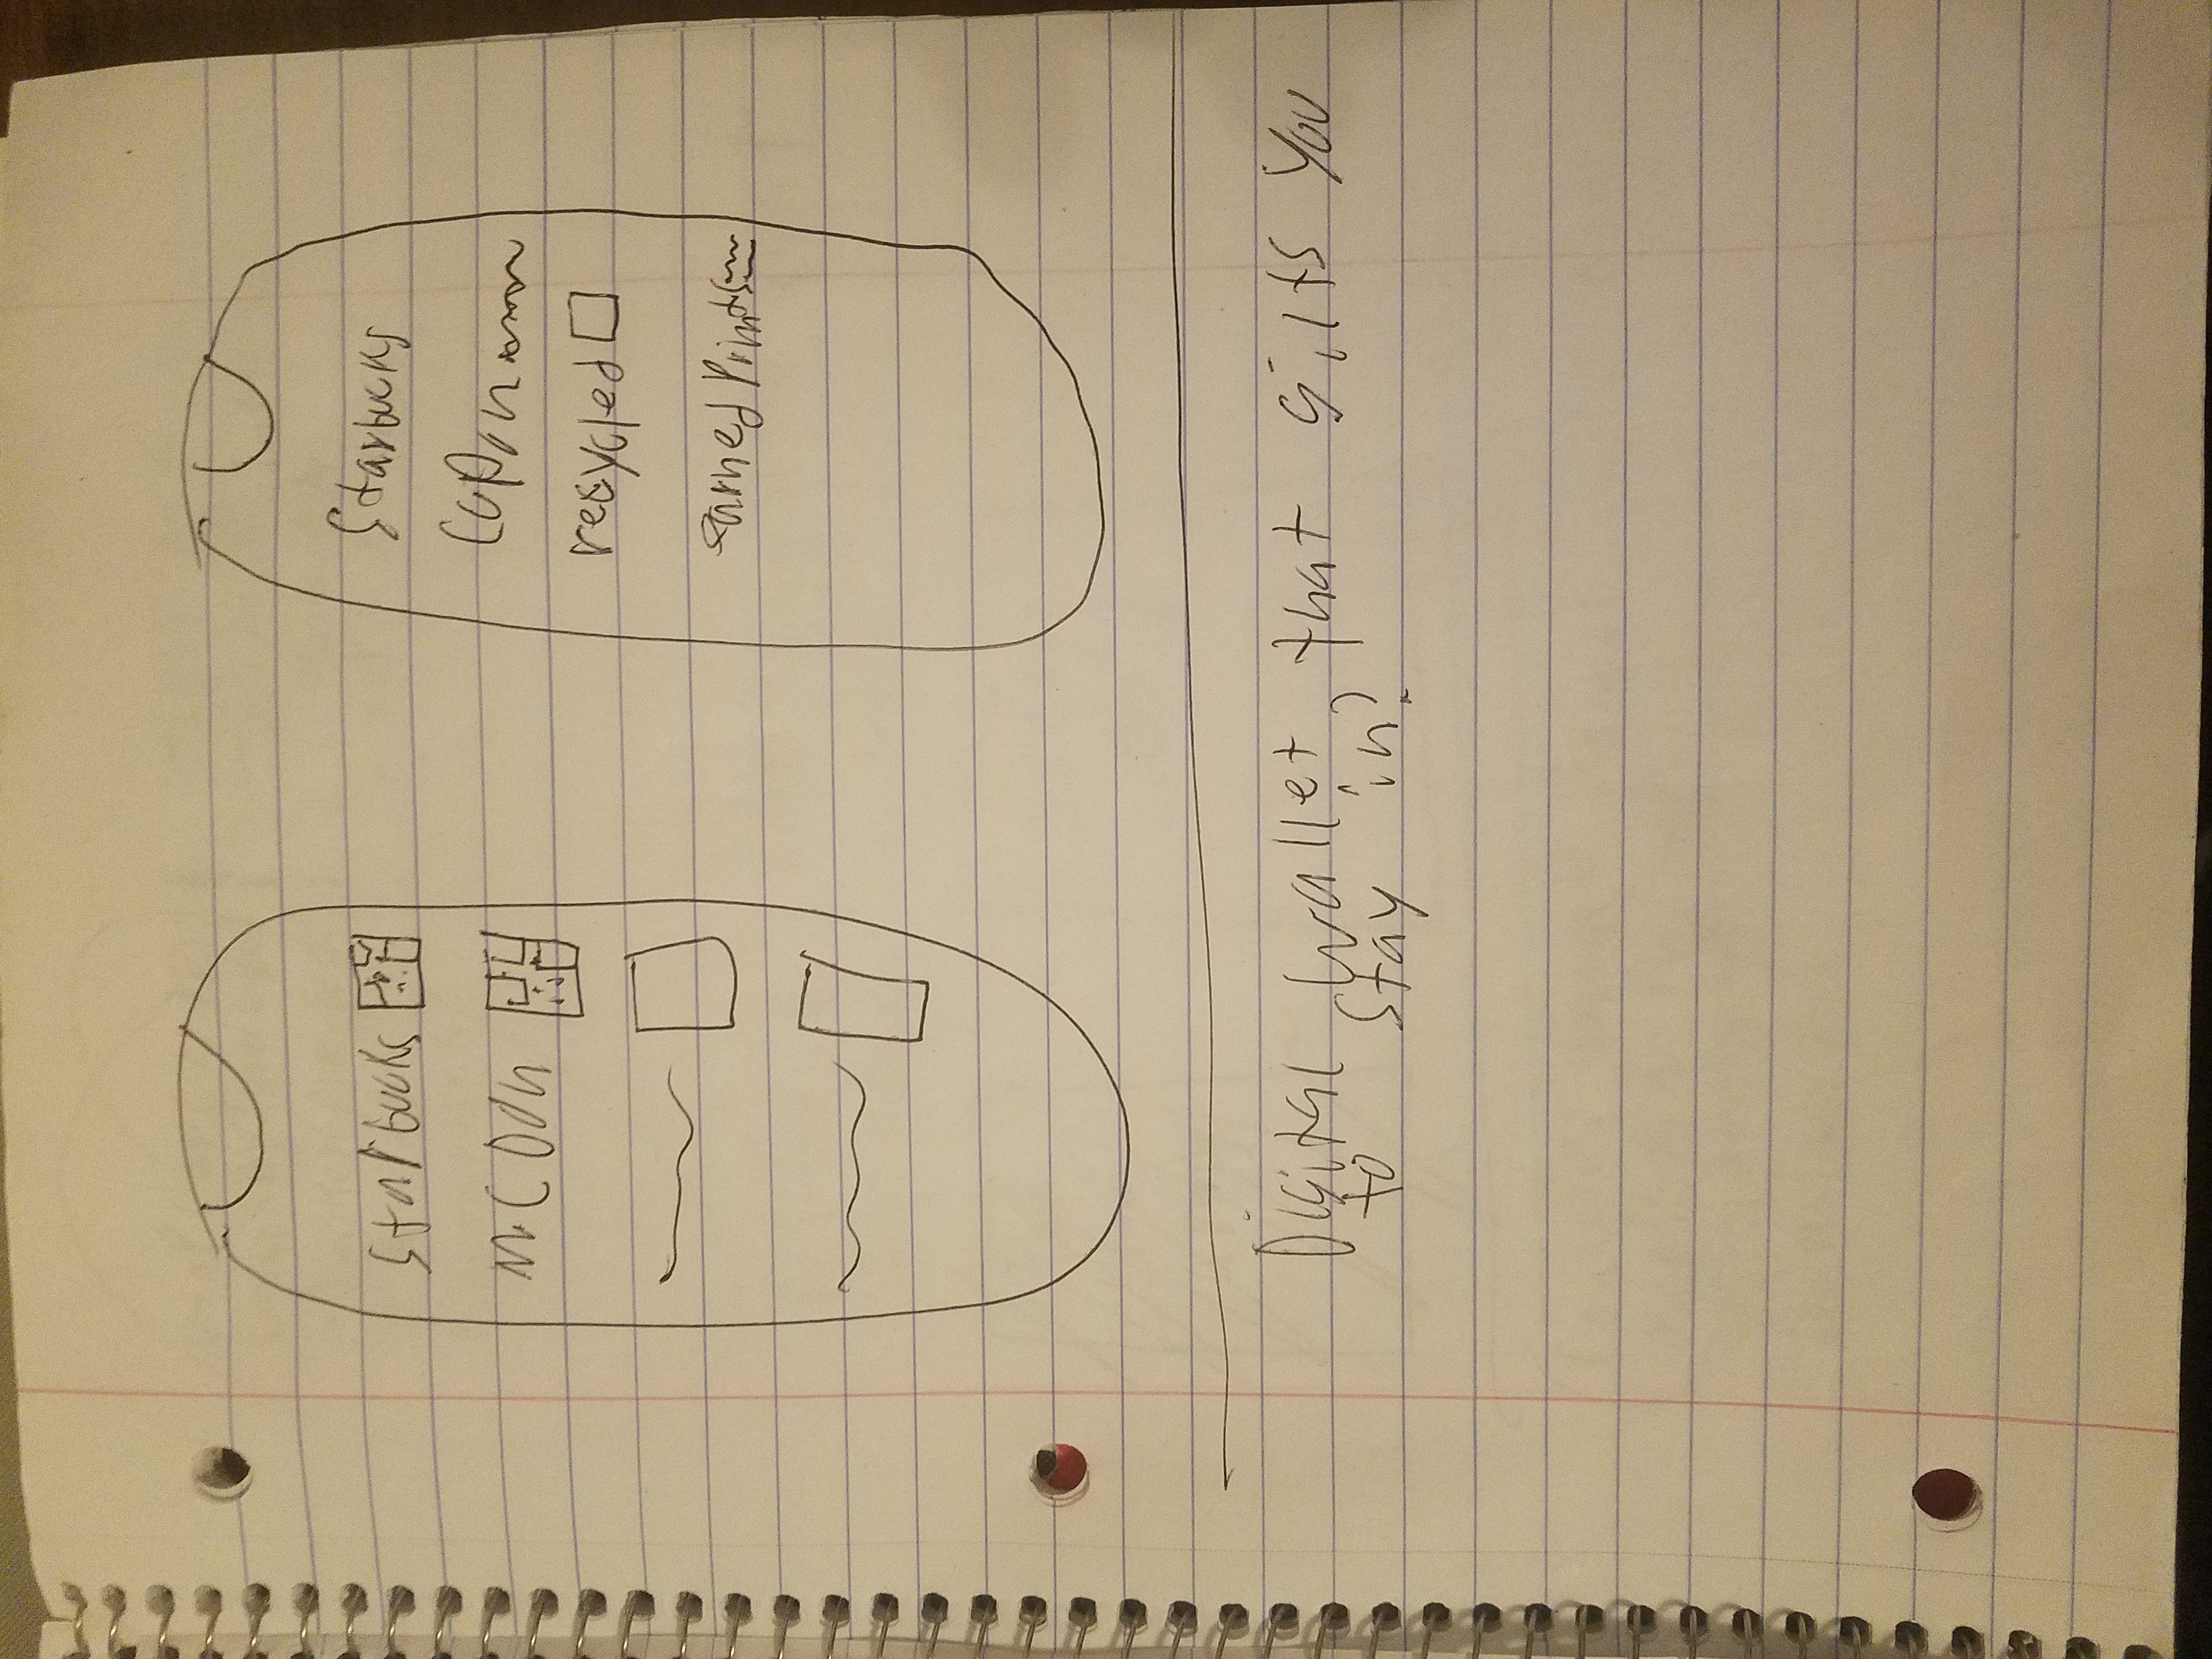 Starbucks
McDon
Starbucks
Cupon
recycled
earned Points
Digital wallet that gilts you
to stay in?